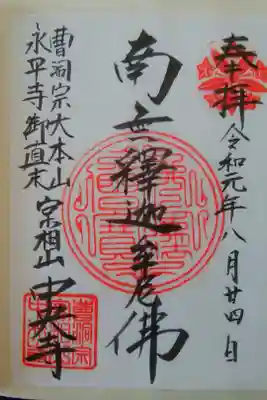 奉拝 令和元年八月廿四日
南無釋迦牟尼佛
曹洞宗大本山
永平寺御直末
宗相山 中央寺